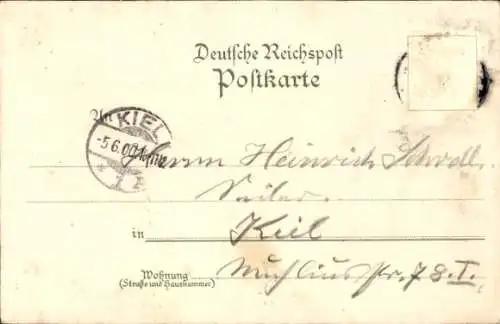 Deutsche Reichspost
Postkarte
An
KIEL
-5.6.00
* 1 *
Herrn Heinrich
in Kiel
str. 78. I.
Wohnung
(Straße und Hausnummer)